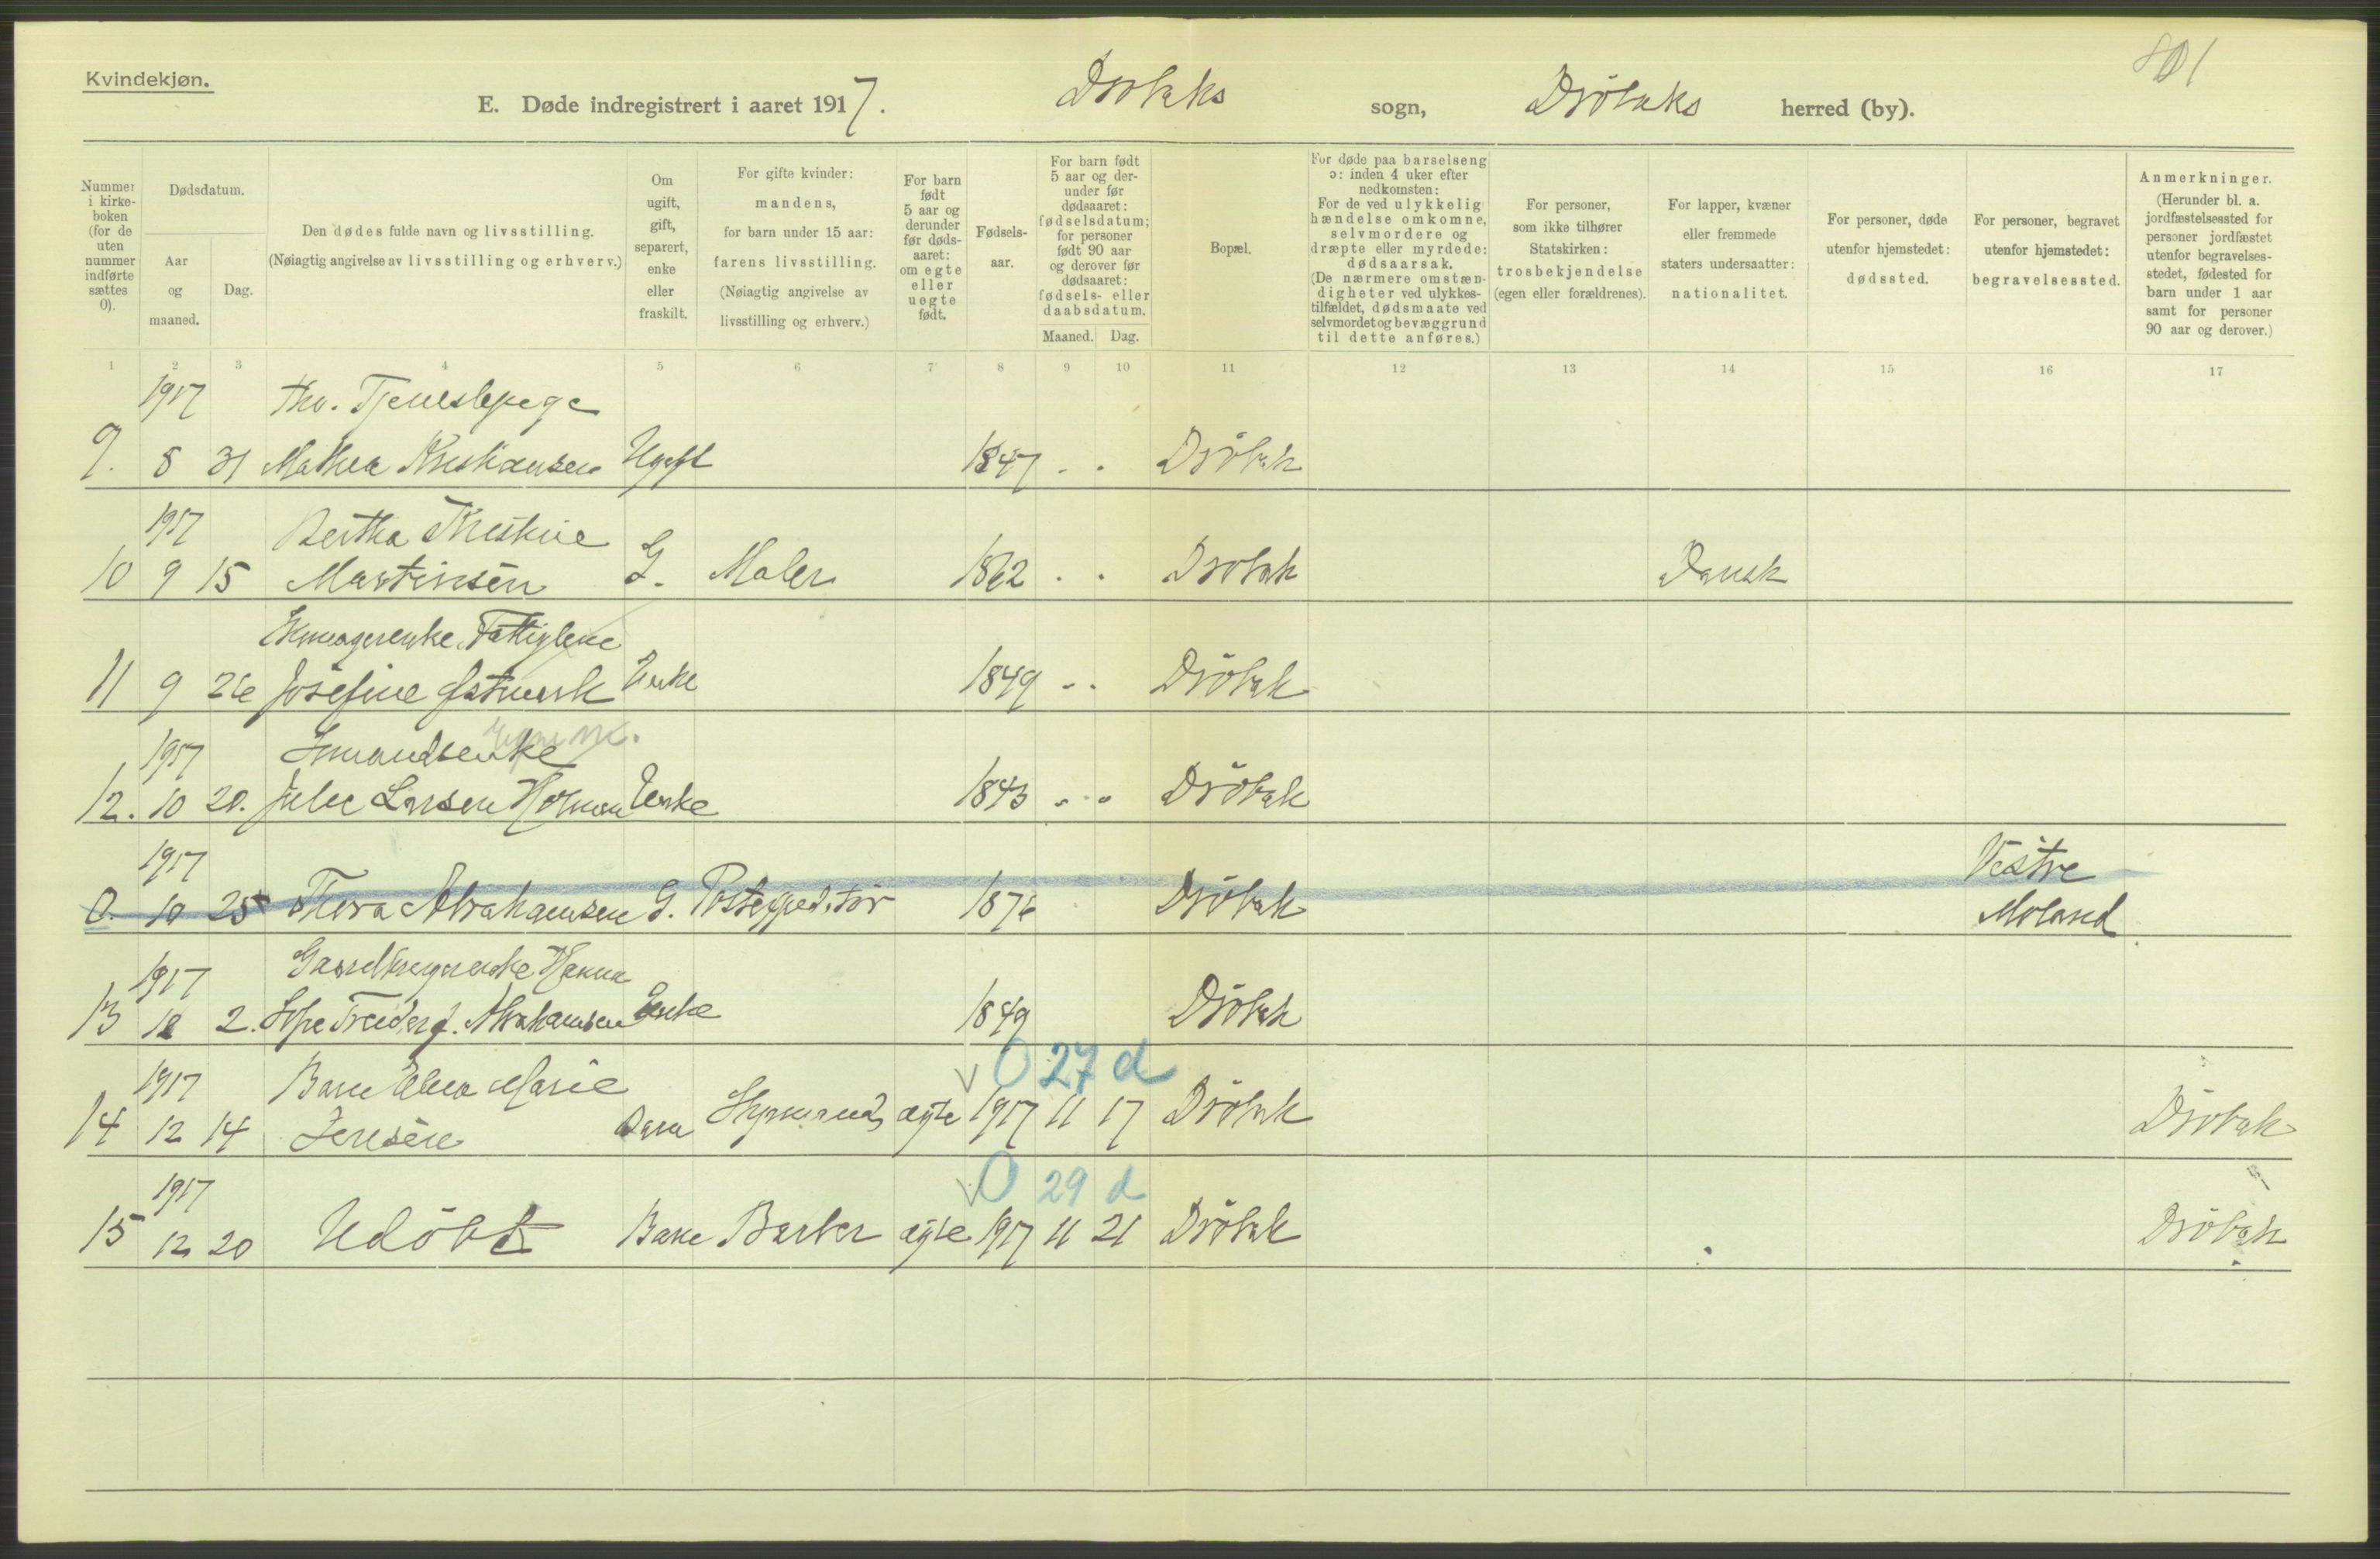 801
Kvindekjøn.
E. Døde indregistrert i aaret 1917. Drøbaks sogn, Drøbaks herred (by).
Nummer i kirkeboken (for de uten nummer indførte sættes 0).
Dødsdatum.
Aar og maaned.
Dag.
Den dødes fulde navn og livsstilling.
(Nøiagtig angivelse av livsstilling og erhverv.)
Om ugift, gift, separert, enke eller fraskilt.
For gifte kvinder: mandens, for barn under 15 aar: farens livsstilling. (Nøiagtig angivelse av livsstilling og erhverv.)
For barn født 5 aar og derunder før dødsaaret: om egte eller uegte født.
Fødselsaar.
For barn født 5 aar og derunder før dødsaaret: fødselsdatum; for personer født 90 aar og derover før dødsaaret: fødsels- eller daabsdatum.
Maaned. Dag.
Bopæl.
For døde paa barselseng ɔ: inden 4 uker efter nedkomsten: For de ved ulykkelig hændelse omkomne, selvmordere og dræpte eller myrdede: dødsaarsak. (De nærmere omstændigheter ved ulykkestilfældet, dødsmaate ved selvmordet og bevæggrund til dette anføres.)
For personer, som ikke tilhører Statskirken: trosbekjendelse (egen eller forældrenes).
For lapper, kvæner eller fremmede staters undersaatter: nationalitet.
For personer, døde utenfor hjemstedet: dødssted.
For personer, begravet utenfor hjemstedet: begravelsessted.
Anmerkninger. (Herunder bl. a. jordfæstelsessted for personer jordfæstet utenfor begravelsesstedet, fødested for barn under 1 aar samt for personer 90 aar og derover.)
1 2 3 4 5 6 7 8 9 10 11 12 13 14 15 16 17
1917 fhv. Tjenestepige
9. 8 31 Mathea Kristiansen Ugift 1847 - - Drøbak
1917 Bertha Kristine
10 9 15 Martinsen G. Maler 1862 - - Drøbak Dansk
Fattiglem
11 9 26 Josefine Østmark Enke 1849 - - Drøbak
1917
12. 10 20. Julie Larsen Holman Enke 1843 - - Drøbak
1917 Vestre
0. 10 25 Thora Abrahamsen G. Postexpeditør 1876 Drøbak Moland
1917 Gaardbrugerenke Hanna
13 12 2. Abrahamsen Enke 1849 Drøbak
0 27 d
1917 Barn Marie
14 12 14 Jensen Barn Styrmand ægte 1917 11 17 Drøbak Drøbak
0 29 d
1917
15 12 20 Udøbt Barn Barber ægte 1917 11 21 Drøbak Drøbak